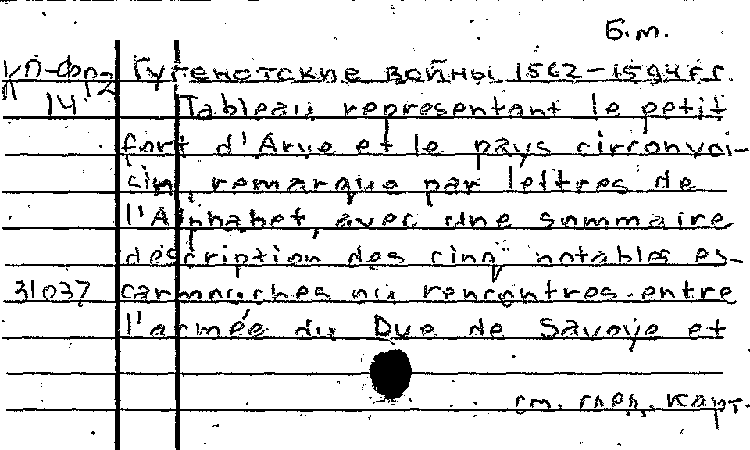 Б.м.
КП-Фр2 Гугенотские войны 1562-1594гг.
14 Tableau representant le petit
fort d'Arve et le pays circonvoi-
sin, remarque par lettres de
l'Alphabet, avec une sommaire
description des cinq notables es-
31037 carmouches ou rencontres entre
l'armée du Duc de Savoye et
см. след. карт.